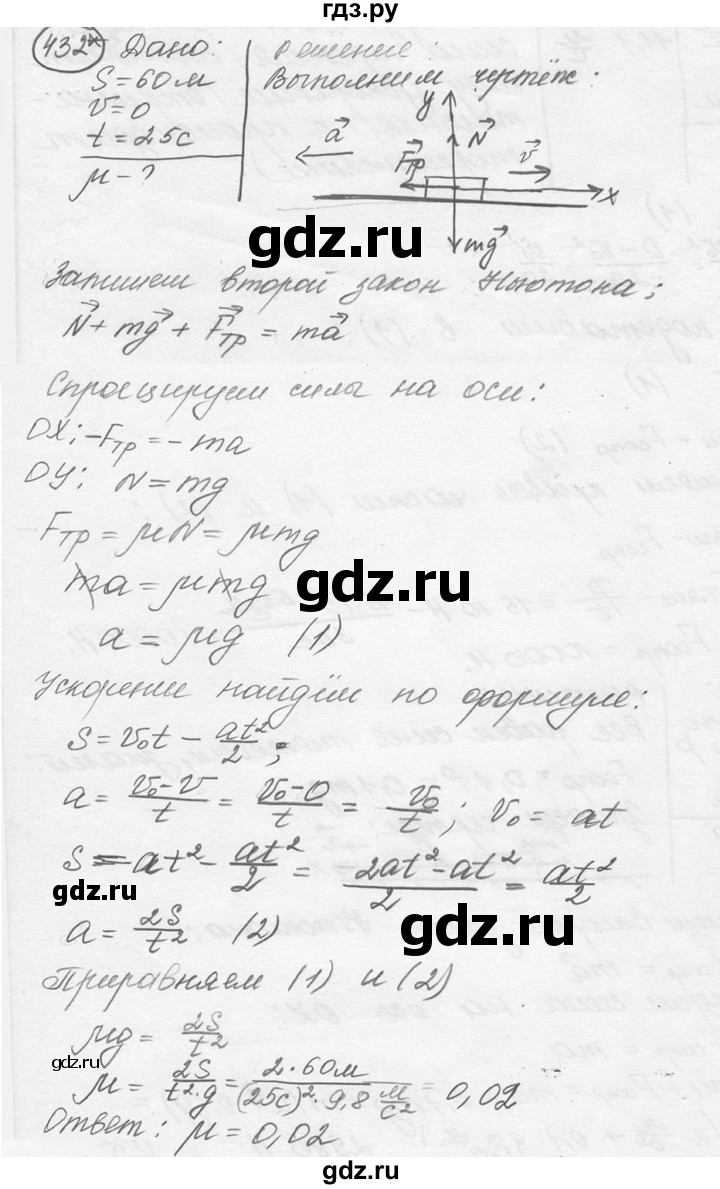 гдз.ру
432* Дано: Решение:
S = 60 м Выполним чертёж:
v = 0
t = 25с
μ - ?
y
N
a
Fтр
v
x
mg
gdz.ru
Запишем второй закон Ньютона:
N + mg + Fтр = ma
Спроецируем силы на оси:
OX: -Fтр = - ma
OY: N = mg
Fтр = μN = μmg
gdz.ru
ma = μmg
a = μg (1)
Ускорение найдём по формуле:
S = v₀t - at²/2;
a = (v₀ - v)/t = (v₀ - 0)/t = v₀/t; v₀ = at
S = at² - at²/2 = (2at² - at²)/2 = at²/2
gdz.ru
gdz.ru
a = 2S/t² (2)
Приравняем (1) и (2)
μg = 2S/t²
gdz.ru
μ = 2S/(t²·g) = 2·60м/((25с)²·9,8 м/с²) = 0,02
Ответ: μ = 0,02
gdz.ru
gdz.ru